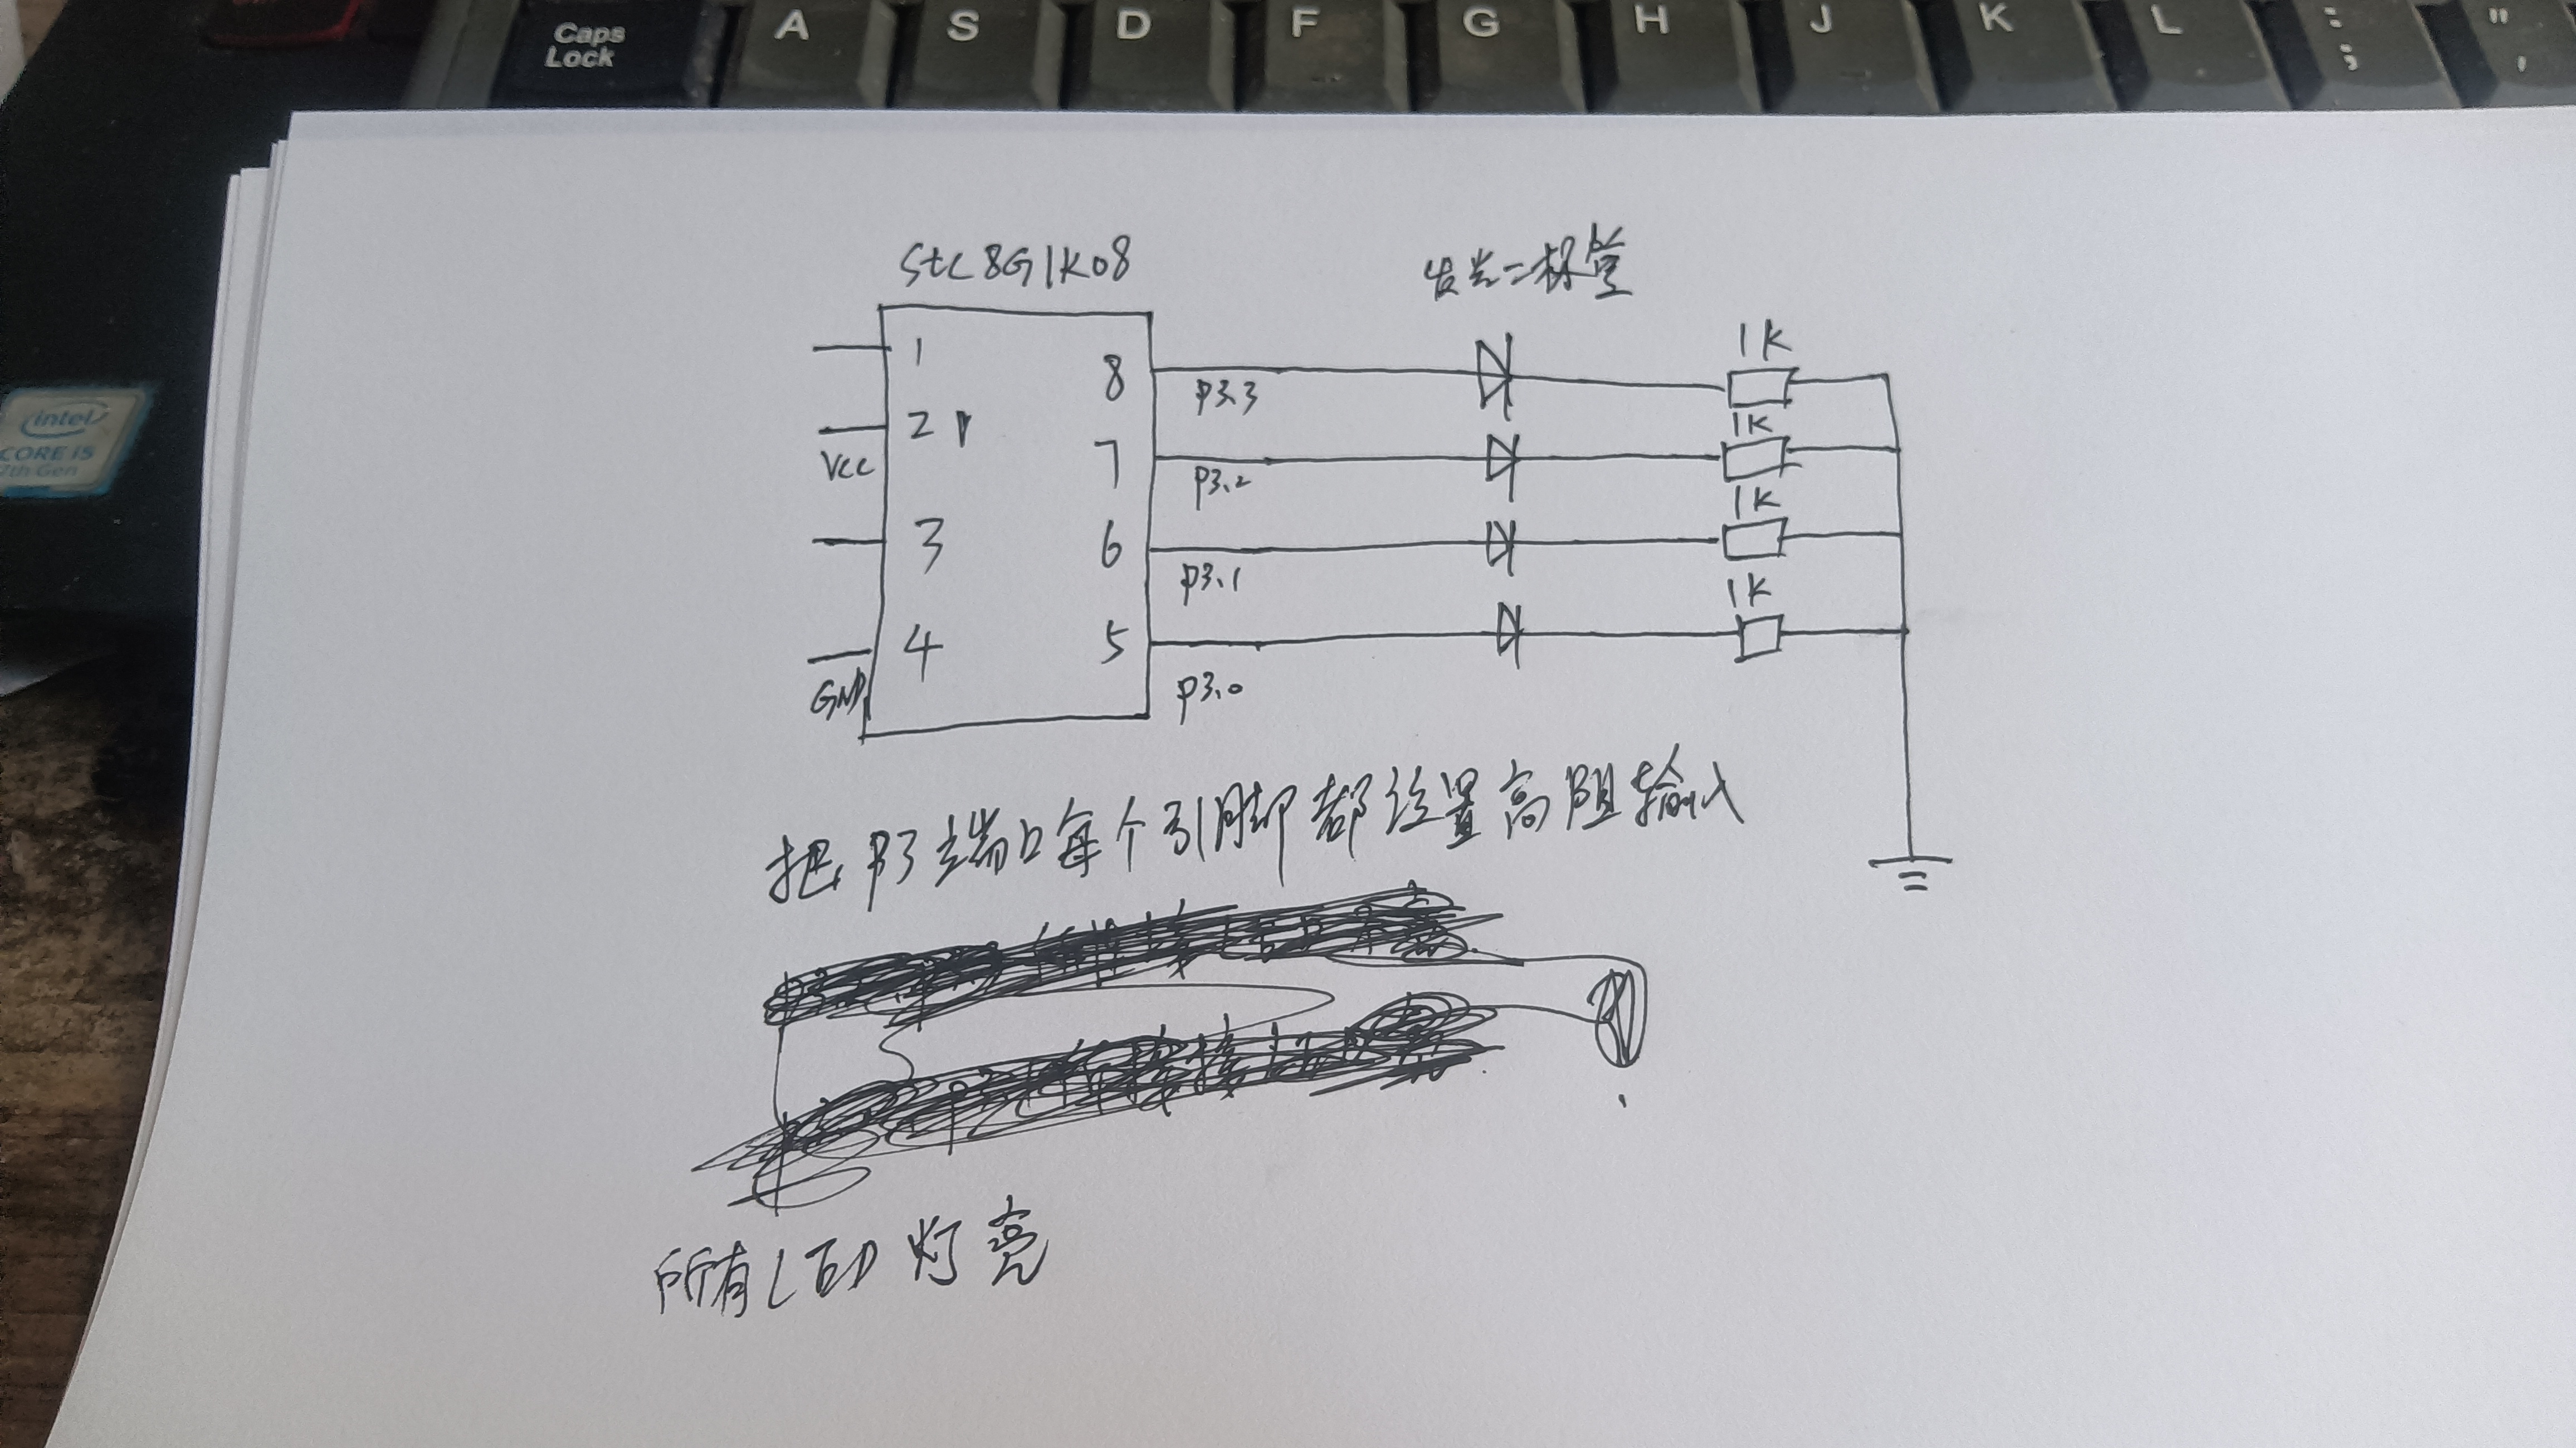 Caps Lock A S D F G H J K L : ; " ,
intel
CORE i5
7th Gen
Stc8G1K08
发光二极管
1 8 P3.3 1K
2 VCC 7 P3.2 1K
3 6 P3.1 1K
4 GND 5 P3.0 1K
把P3端口每个引脚都设置高阻输入
所有LED灯亮